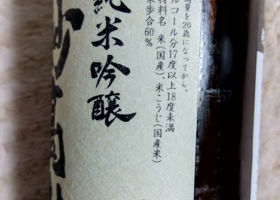 純米吟醸
酒を20歳になってから。
ルコール分17度以上18度未満
材料名 米(国産)、米こうじ(国産米)
米歩合60%